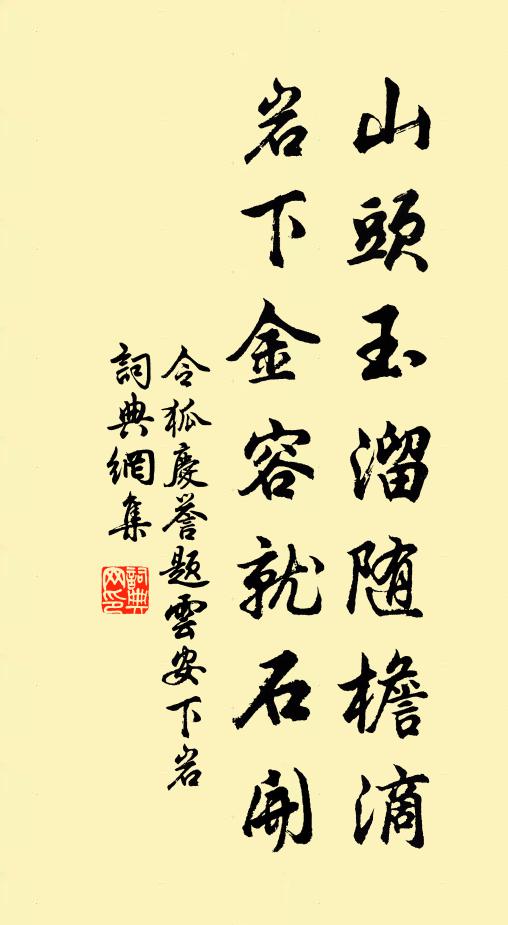 山頭玉溜随檐滴
岩下金容就石開
令狐慶誉題雲安下岩
詞典網集
詞典網印